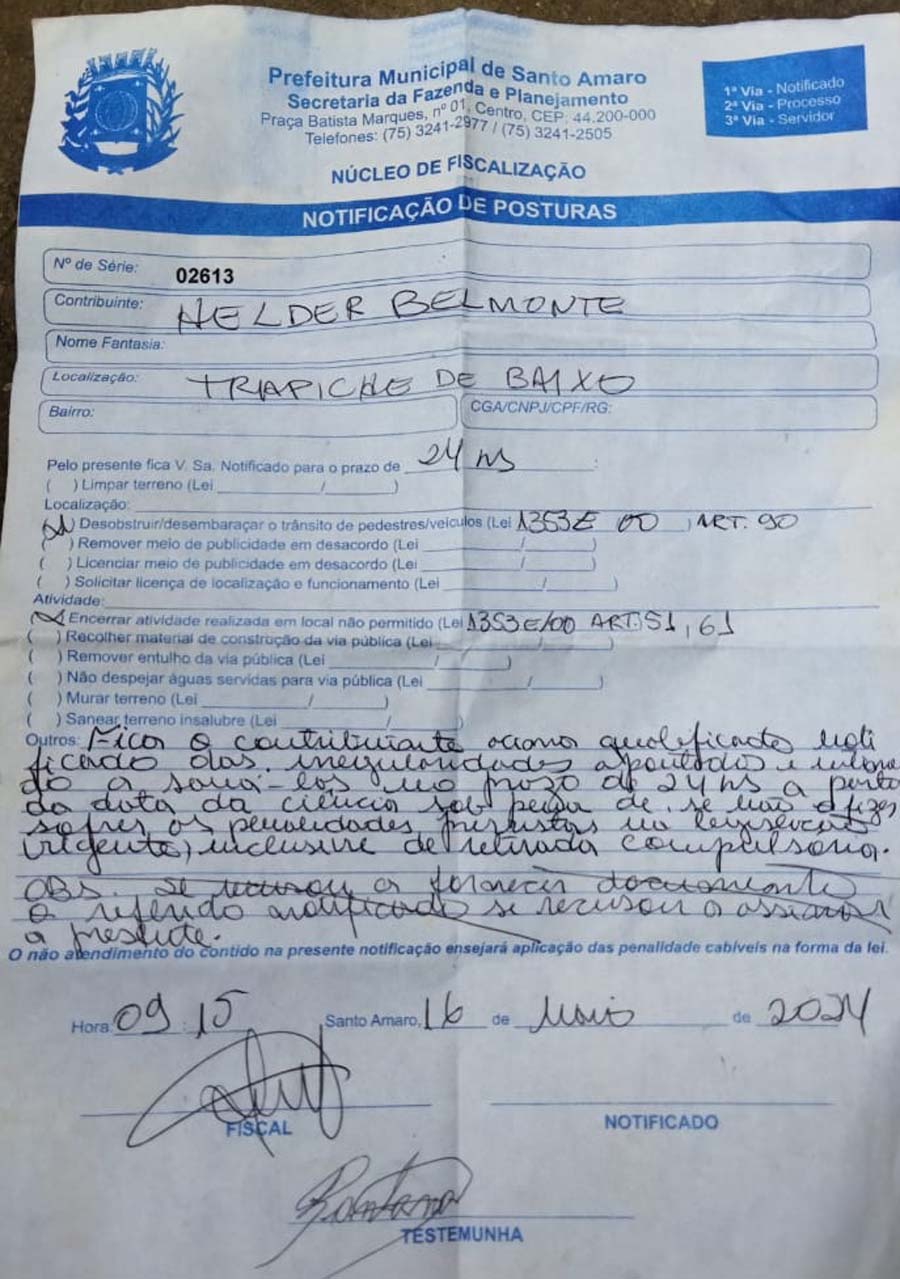 Prefeitura Municipal de Santo Amaro
Secretaria da Fazenda e Planejamento
Praça Batista Marques, nº 01, Centro, CEP: 44.200-000
Telefones: (75) 3241-2977 / (75) 3241-2505
1ª Via - Notificado
2ª Via - Processo
3ª Via - Servidor
NÚCLEO DE FISCALIZAÇÃO
NOTIFICAÇÃO DE POSTURAS
Nº de Série: 02613
Contribuinte: HELDER BELMONTE
Nome Fantasia:
Localização: TRAPICHE DE BAIXO
Bairro: CGA/CNPJ/CPF/RG:
Pelo presente fica V. Sa. Notificado para o prazo de 24 hs :
( ) Limpar terreno (Lei ________/________)
Localização:
(X) Desobstruir/desembaraçar o trânsito de pedestres/veículos (Lei 1353E 00 , ART. 90
( ) Remover meio de publicidade em desacordo (Lei ________/________)
( ) Licenciar meio de publicidade em desacordo (Lei ________/________)
( ) Solicitar licença de localização e funcionamento (Lei ________/________)
Atividade:
(X) Encerrar atividade realizada em local não permitido (Lei 1353E/00 ART. 51, 61
( ) Recolher material de construção da via pública (Lei ________/________)
( ) Remover entulho da via pública (Lei ________/________)
( ) Não despejar águas servidas para via pública (Lei ________/________)
( ) Murar terreno (Lei ________/________)
( ) Sanear terreno insalubre (Lei ________/________)
Outros: Fica o contribuinte acima qualificado noti
ficado das irregularidades apontadas e intima
do a saná-las no prazo de 24 hs a partir
da data da ciência sob pena de se não o fizer
sofrer as penalidades previstas na legislação
(vigente) inclusive de retirada compulsória.
OBS. Se recusou a fornecer documento
O referido notificado se recusou a assinar
a presente.
O não atendimento do contido na presente notificação ensejará aplicação das penalidade cabíveis na forma da lei.
Hora: 09 : 15 Santo Amaro, 16 de Maio de 2024
FISCAL
NOTIFICADO
TESTEMUNHA